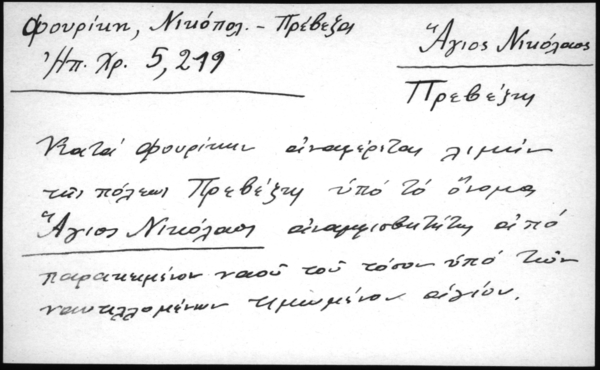 Φουρίκη, Νικόπολ. - Πρέβεζα
Ἠπ. Χρ. 5, 219
Ἅγιος Νικόλαος
Πρεβέζης
Κατά Φουρίκην ἀναφέρεται λιμήν
τῆς πόλεως Πρεβέζης ὑπό τό ὄνομα
Ἅγιος Νικόλαος ἀναμφισβητήτως ἀπό
παρακειμένου ναοῦ τοῦ τόσον ὑπό τῶν
ναυτιλλομένων τιμωμένου ἁγίου.